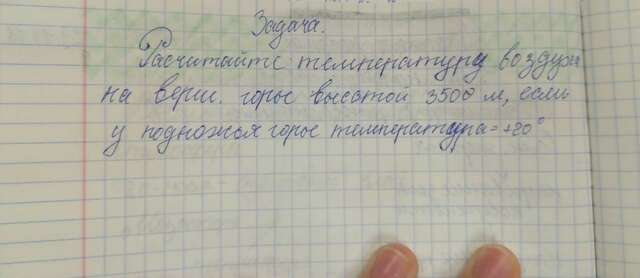 Задача.
Расчитайте температуру воздуха
на верш. горы высотой 3500 м, если
у подножья горы температура = +20°